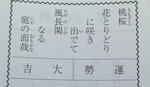 桃桜
花とりどり
に咲き
出でて
風長閑
なる
庭の面哉
運勢大吉